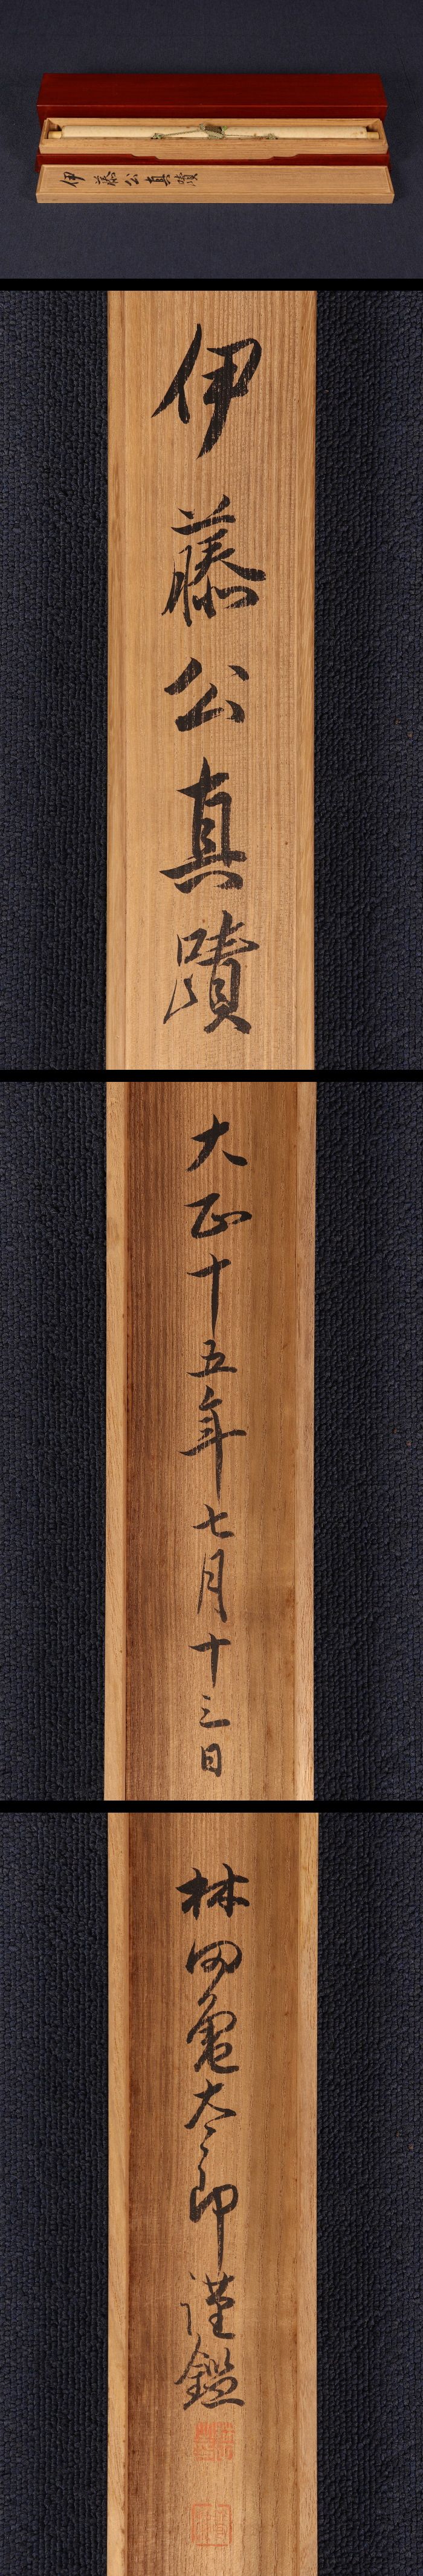 伊藤公真蹟
伊藤公真蹟
大正十五年七月十三日
林田亀太郎謹鑑